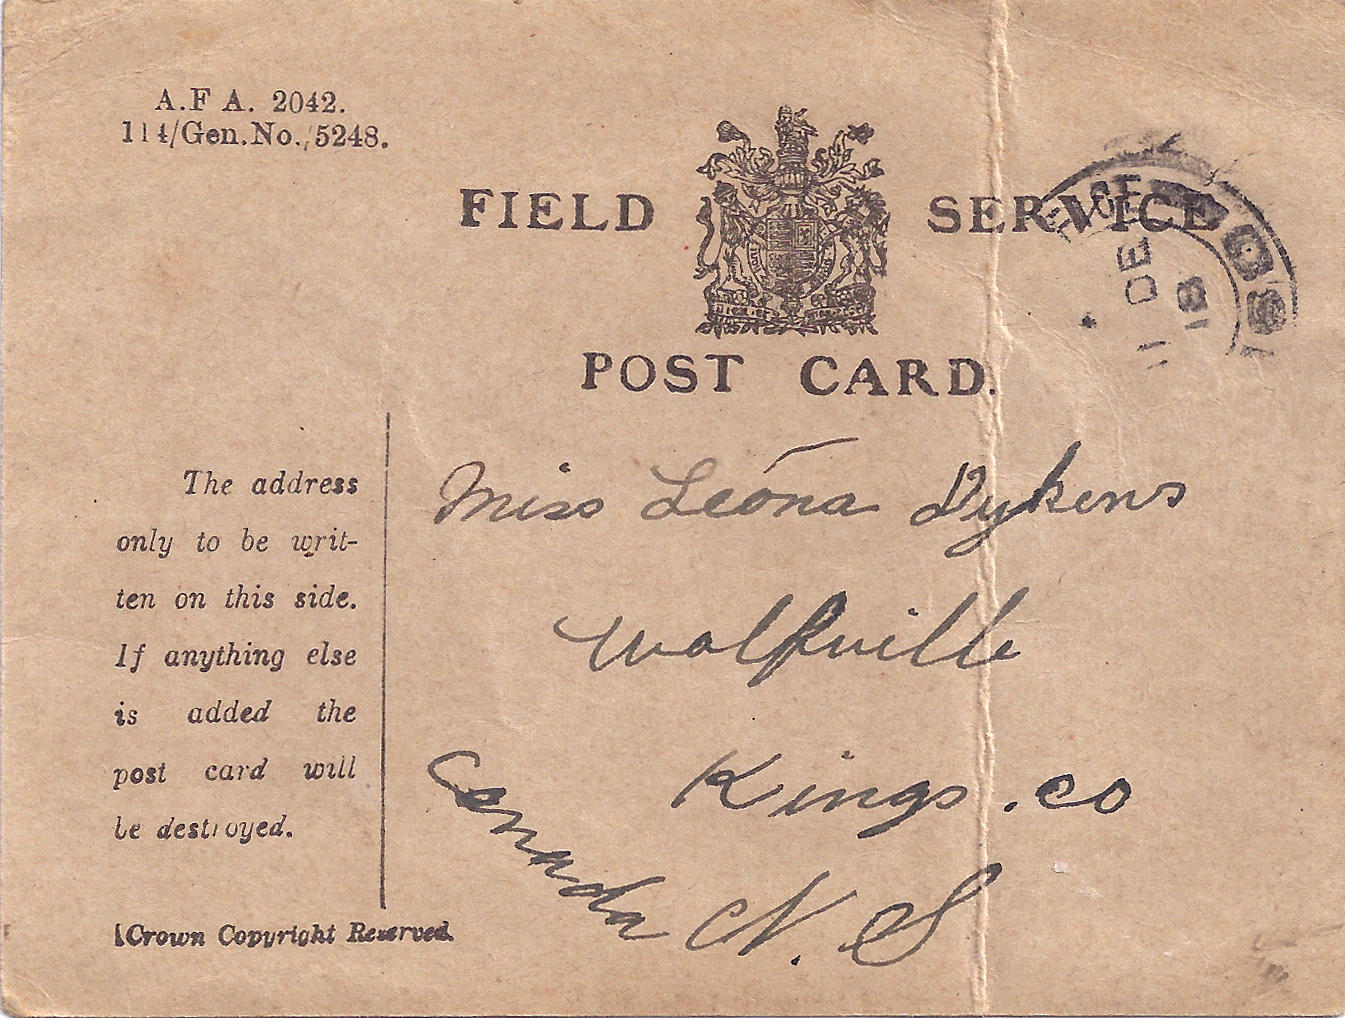 A.F A. 2042.
114/Gen.No./5248.
FIELD SERVICE
POST CARD.
The address
only to be writ-
ten on this side.
If anything else
is added the
post card will
be destroyed.
Crown Copyright Reserved.
Miss Leona Dykens
Wolfville
Kings. co
Canada N. S
11 DE
18